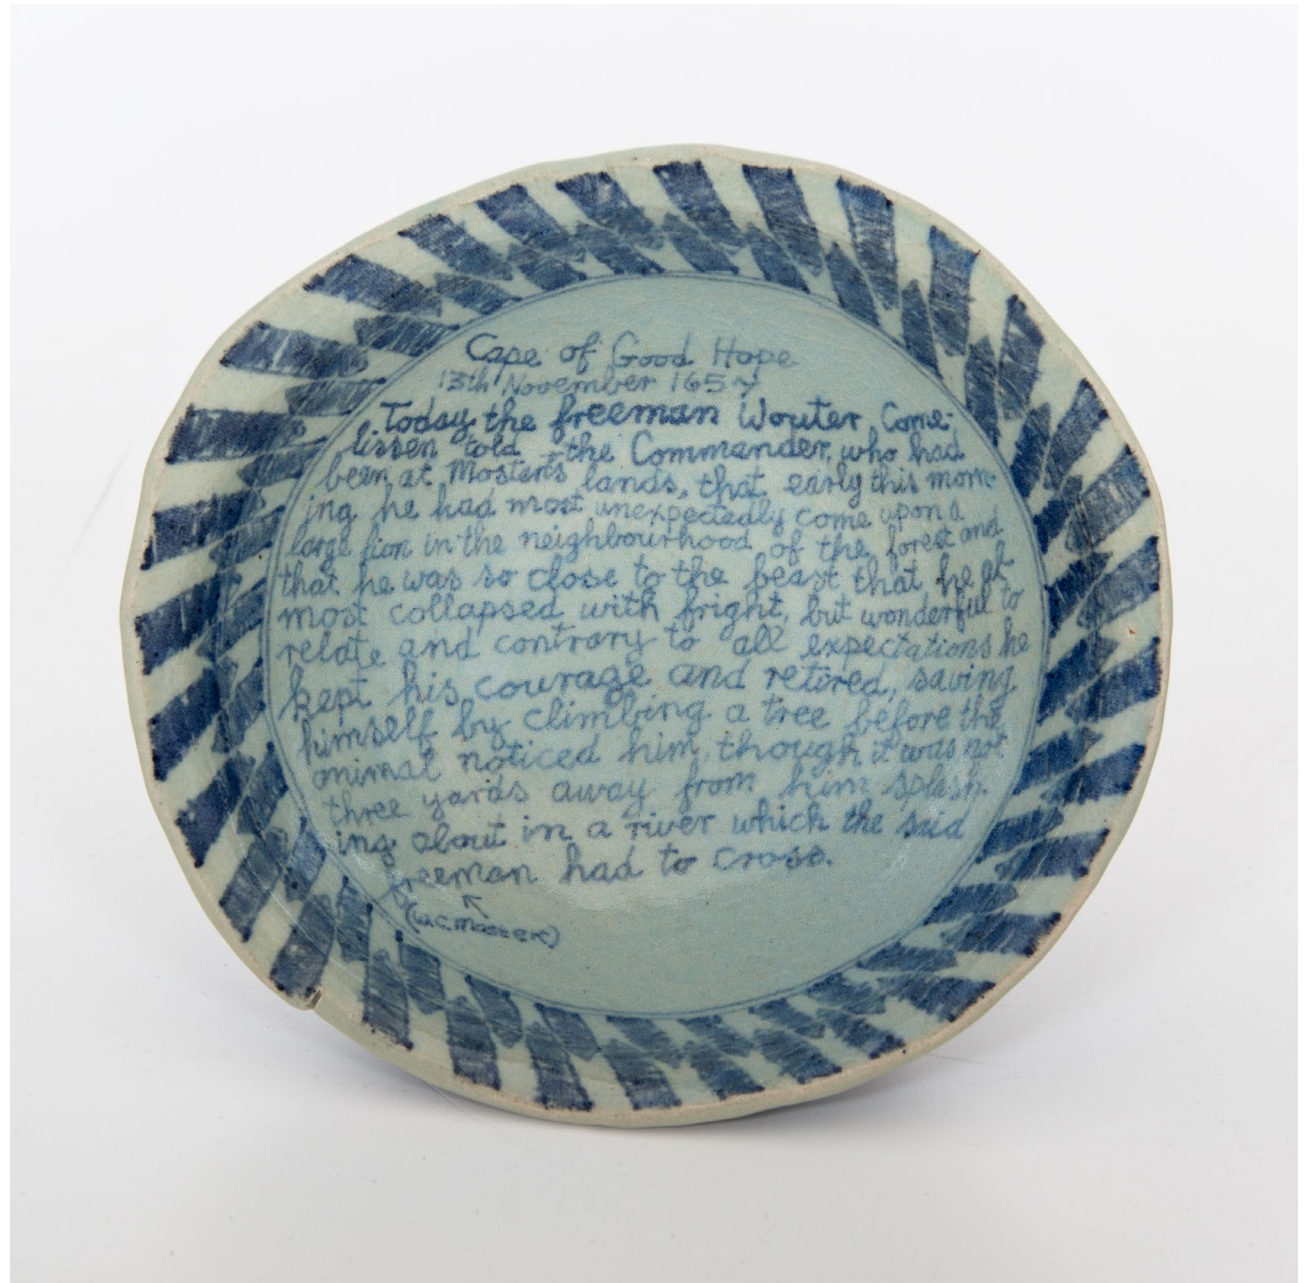 Cape of Good Hope
13th November 1657
Today the freeman Wouter Corne-
lissen told the Commander, who had
been at Mostert's lands, that early this morn-
ing he had most unexpectedly come upon a
large lion in the neighbourhood of the forest and
that he was so close to the beast that he al-
most collapsed with fright, but wonderful to
relate and contrary to all expectations he
kept his courage and retired, saving
himself by climbing a tree before the
animal noticed him, though it was not
three yards away from him splash-
ing about in a river which the said
freeman had to cross.